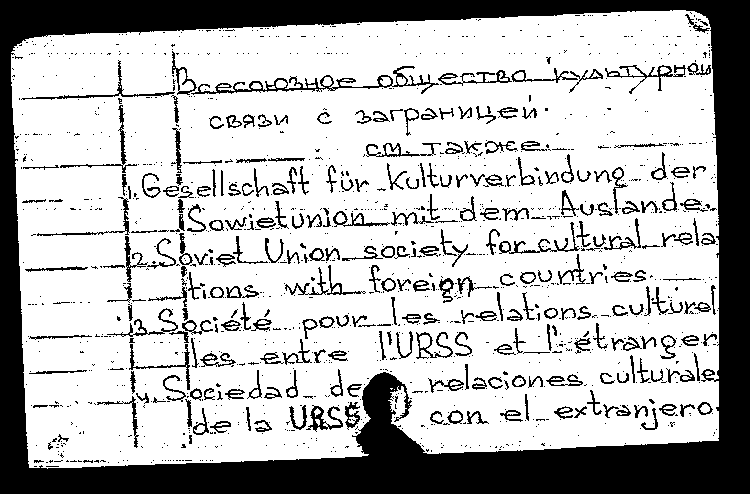 Всесоюзное общество культурной
связи с заграницей.
см. также.
1. Gesellschaft für Kulturverbindung der
Sowietunion mit dem Auslande.
2. Soviet Union society for cultural rela
tions with foreign countries.
3. Société pour les relations culturel
les entre l'URSS et l'étranger
4. Sociedad de relaciones culturales
de la URSS con el extranjero.